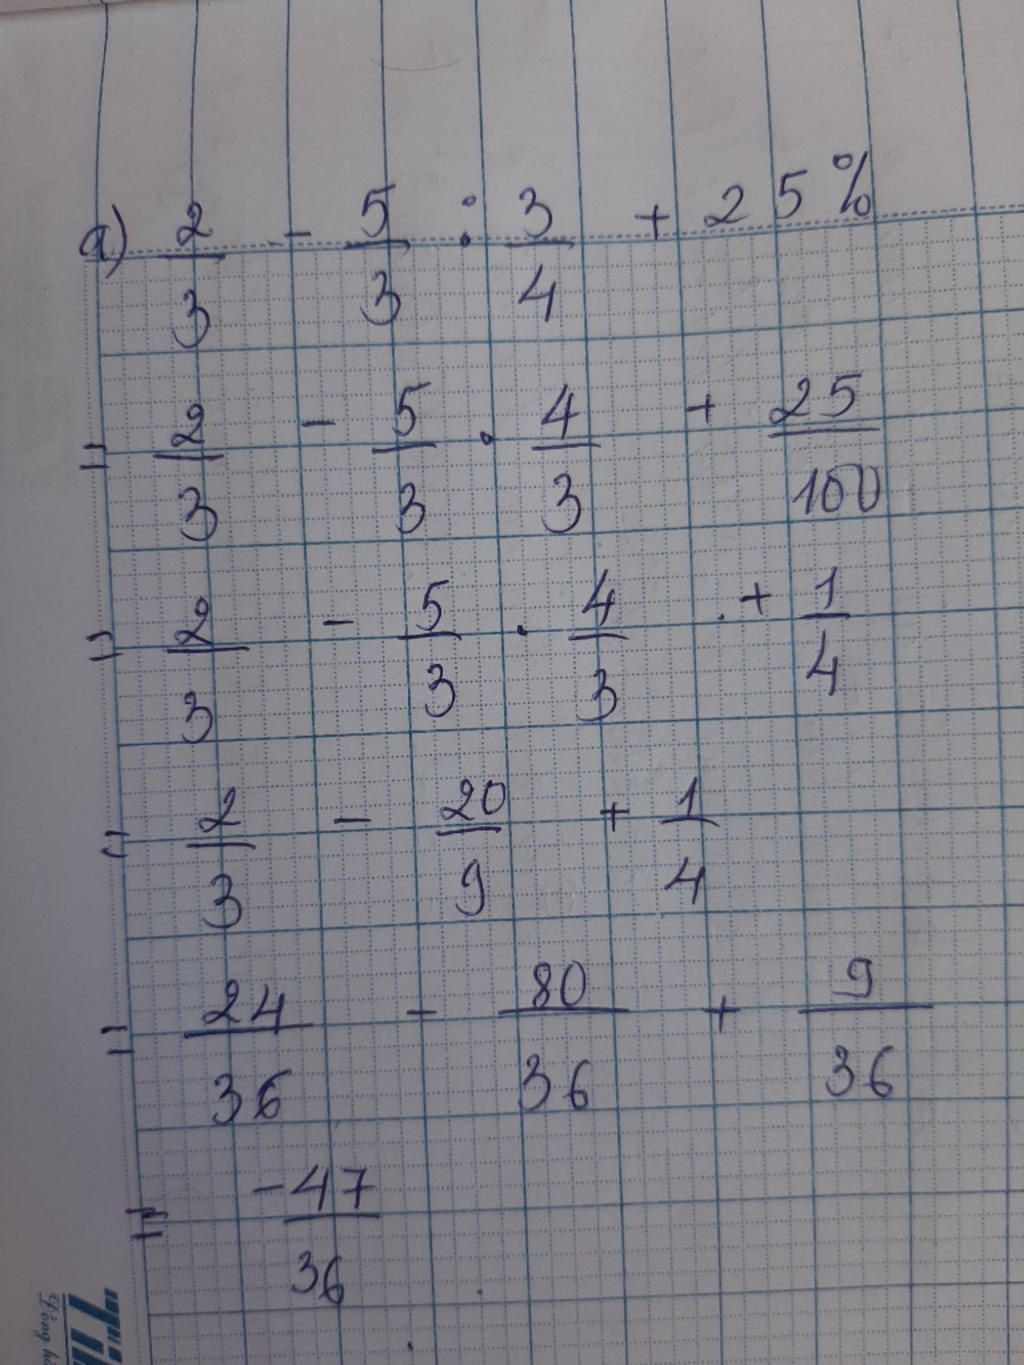 a) 2/3 - 5/3 : 3/4 + 25%
= 2/3 - 5/3 . 4/3 + 25/100
= 2/3 - 5/3 . 4/3 + 1/4
= 2/3 - 20/9 + 1/4
= 24/36 - 80/36 + 9/36
= -47/36